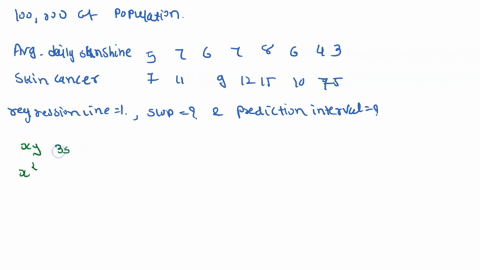 100,000 of population.
Avg. daily sunshine 5 7 6 7 8 6 4 3
Skin cancer 7 11 9 12 15 10 7 5
regression line = ?, SWP = ? & prediction interval = ?
xy 35
x²